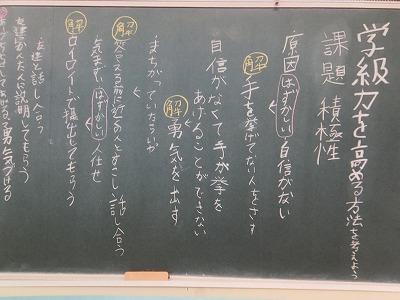 学級力を高める方法を考えよう
課題 積極性
原因 はずかしい 自信がない
解 手を挙げてない人をさす
自信がなくて手が挙を
あげることができない
解 勇気を出す
まちがっていたらいや
解 発表する前に近くの人とすこし話し合う
気まずい はずかしい 人任せ
解 ロイロノートで提出してもらう
友達と話し合う